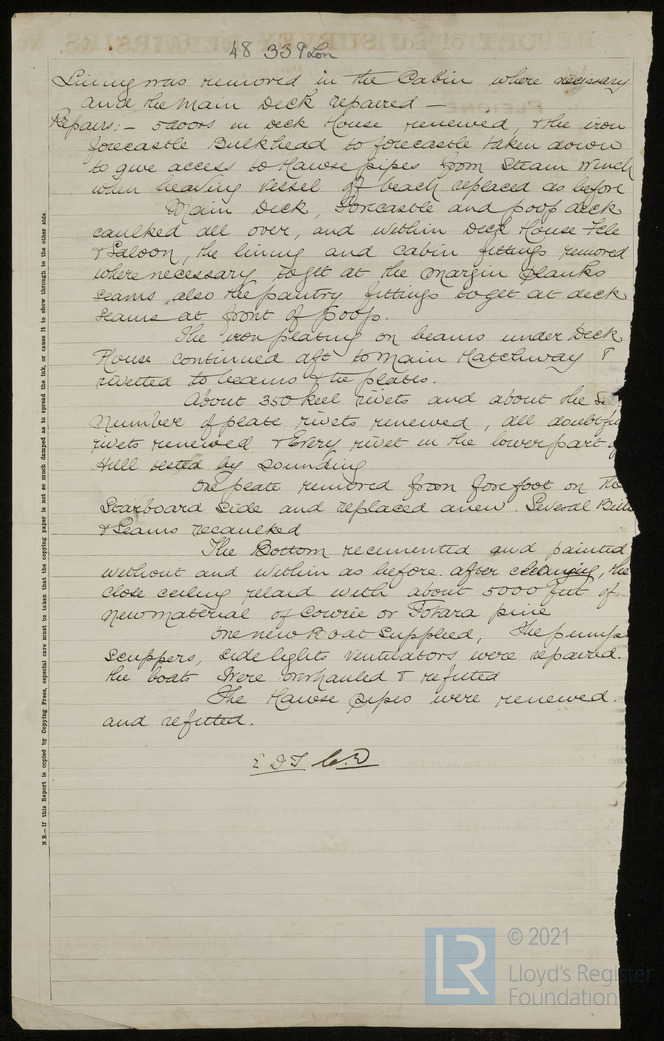 48 339 Lon
Lining was removed in the Cabin where necessary
and the Main Deck repaired —
Repairs:— 5 doors in Deck House renewed, & the iron
forecastle Bulkhead to forecastle taken down
to give access to Hawse pipes from Steam Winch
when heaving Vessel off beach replaced as before
Main Deck, Forecastle and poop deck
caulked all over, and within Deck House
& Saloon, the lining and cabin fittings removed
where necessary to get at the Margin planks
seams, also the pantry fittings to get at deck
seams at front of poop.
The iron plating on beams under Deck
House continued aft to Main Hatchway &
rivetted to beams & tie plates.
About 350 keel rivets and about the
Number of plate rivets renewed, all doubtful
rivets renewed & Every rivet in the lower part
Hull tested by sounding
One plate removed from forefoot on the
Starboard side and replaced anew. Several Butts
& Seams recaulked
The Bottom recemented and painted
without and within as before. after cleaning, the
close ceiling relaid with about 5000 feet of
New material of Cowrie or Totara pine
One new Boat supplied, The pumps
scuppers, sidelights ventilators were repaired.
the boats were overhauled & refitted
The Hawse pipes were renewed.
and refitted.
N.B.—If this Report is copied by Copying Press, especial care must be taken that the copying paper is not so much damped as to spread the ink, or cause it to show through to the other side.
LR
© 2021
Lloyd's Register
Foundation